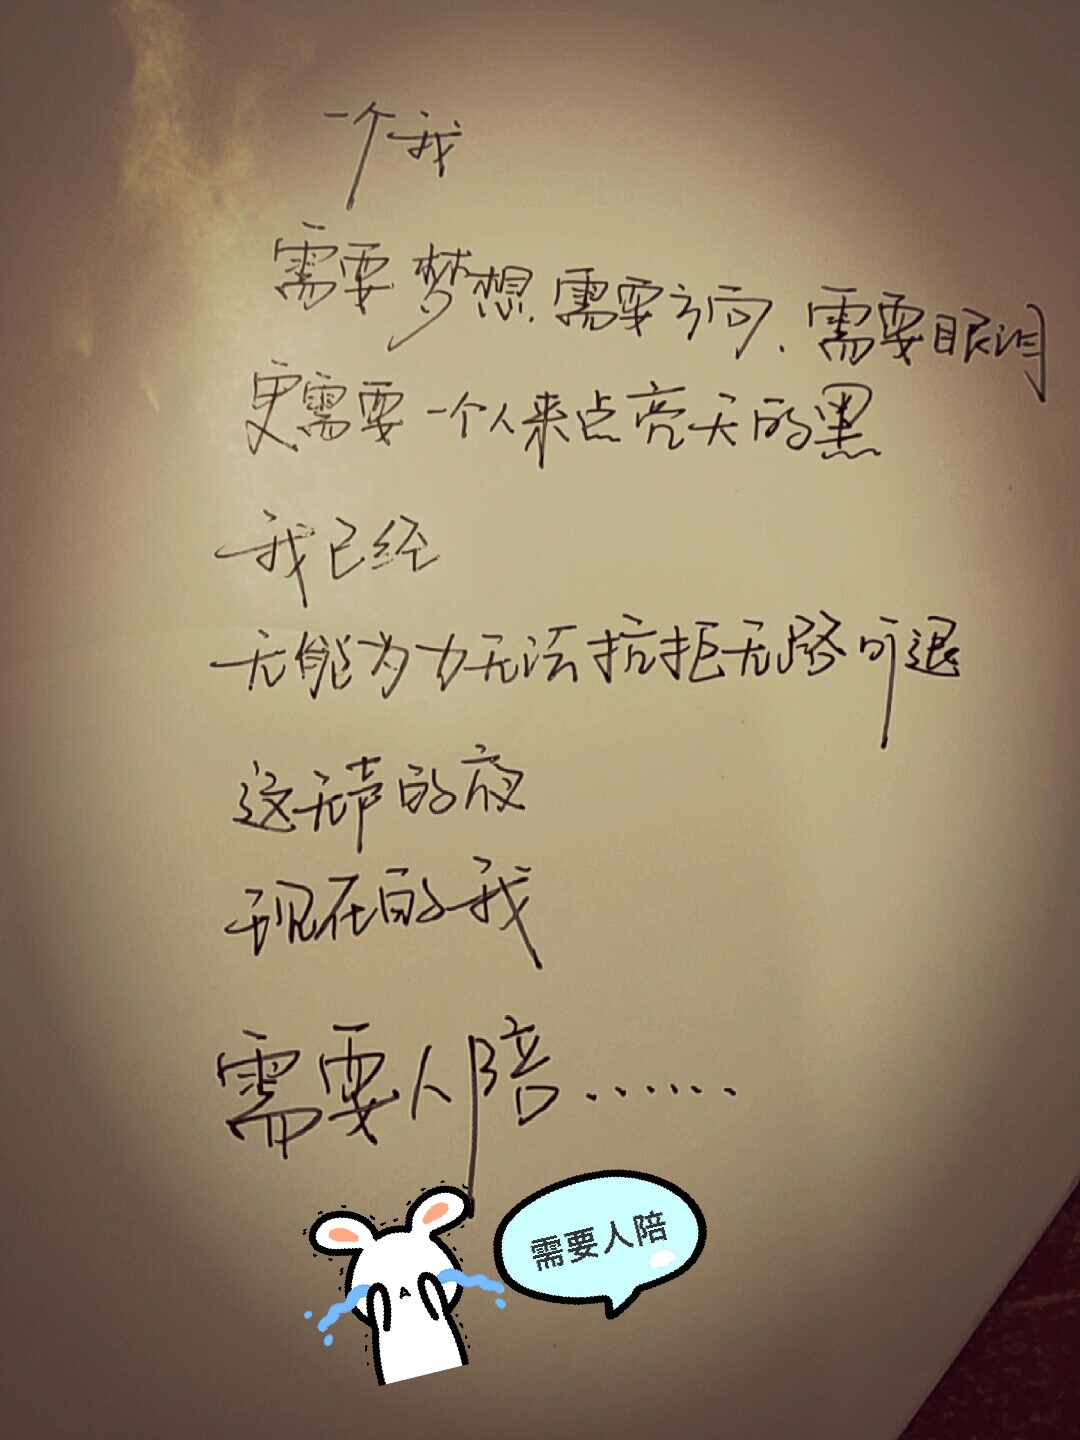 一个我
需要梦想.需要方向.需要眼泪
更需要一个人来点亮天的黑
我已经
无能为力无法抗拒无路可退
这无声的夜
现在的我
需要人陪……
需要人陪